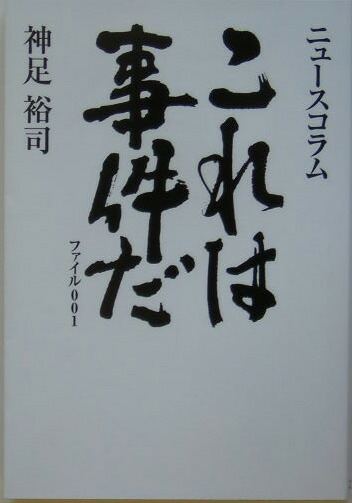 ニュースコラム
これは
事件だ
ファイル001
神足裕司